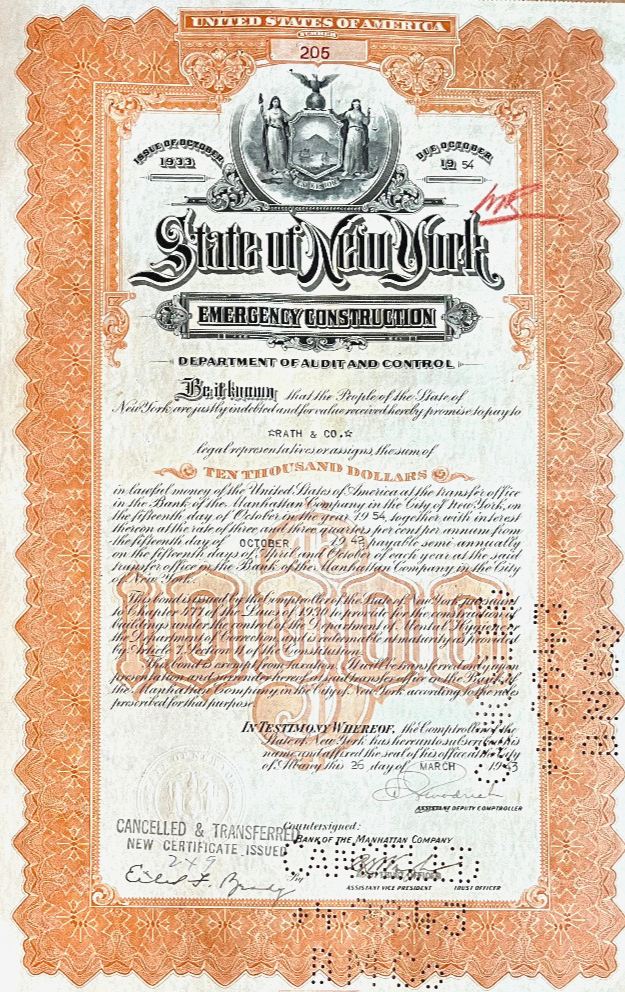 UNITED STATES OF AMERICA
NUMBER
205
ISSUE OF OCTOBER
1933
DUE OCTOBER
19 54
EXCELSIOR
State of New York
EMERGENCY CONSTRUCTION
DEPARTMENT OF AUDIT AND CONTROL
Be it known, that the People of the State of
New York are justly indebted and for value received hereby promise to pay to
☆RATH & CO.☆
legal representatives or assigns, the sum of
TEN THOUSAND DOLLARS
in lawful money of the United States of America at the transfer office
in the Bank of the Manhattan Company in the City of New York, on
the fifteenth day of October in the year 19 54, together with interest
thereon at the rate of three and three quarters per cent per annum from
the fifteenth day of OCTOBER 1942, payable semi-annually
on the fifteenth days of April and October of each year at the said
transfer office in the Bank of the Manhattan Company in the City
of New York.
10000
This bond is issued by the Comptroller of the State of New York pursuant
to Chapter 177 of the Laws of 1930 to provide for the construction of
buildings under the control of the Department of Mental Hygiene or
the Department of Correction, and is redeemable at maturity as provided
by Article 7, Section 11 of the Constitution.
This bond is exempt from taxation. It will be transferred only upon
presentation and surrender hereof at said transfer office in the Bank of
the Manhattan Company in the City of New York according to the rules
prescribed for that purpose.
IN TESTIMONY WHEREOF, the Comptroller of the
State of New York has hereunto subscribed his
name and affixed the seal of his office at the City
of Albany this 26 day of MARCH 1943
ASSISTANT DEPUTY COMPTROLLER
CANCELLED & TRANSFERRED
NEW CERTIFICATE ISSUED
249
Countersigned:
BANK OF THE MANHATTAN COMPANY
By
ASSISTANT VICE PRESIDENT TRUST OFFICER
CANCELLED